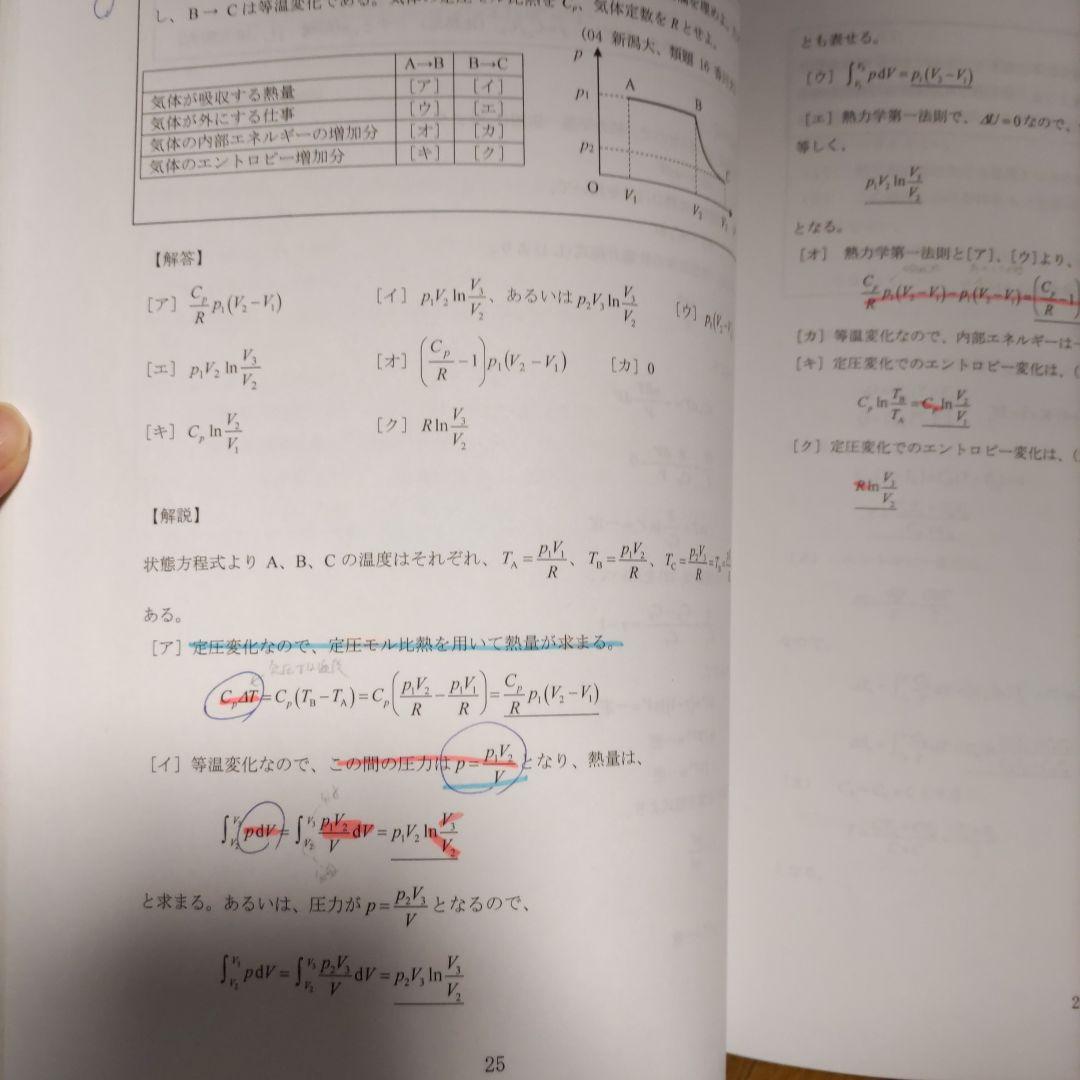 し、B → C は等温変化である。気体の定圧モル比熱を Cp、気体定数を R とせよ。
(04 新潟大、類題 16
A→B B→C
気体が吸収する熱量 [ア] [イ]
気体が外にする仕事 [ウ] [エ]
気体の内部エネルギーの増加分 [オ] [カ]
気体のエントロピー増加分 [キ] [ク]
p
p₁
p₂
O
A
B
V₁
【解答】
[ア] Cp/R p₁(V₂−V₁) [イ] p₁V₂ ln V₃/V₂、あるいは p₂V₃ ln V₃/V₂ [ウ] p₁(V₂−V₁
[エ] p₁V₂ ln V₃/V₂ [オ] (Cp/R −1)p₁(V₂−V₁) [カ] 0
[キ] Cp ln V₂/V₁ [ク] R ln V₃/V₂
【解説】
状態方程式より A、B、C の温度はそれぞれ、TA = p₁V₁/R、TB = p₁V₂/R、TC = p₂V₃/R
ある。
[ア] 定圧変化なので、定圧モル比熱を用いて熱量が求まる。
CpΔT = Cp(TB−TA) = Cp(p₁V₂/R − p₁V₁/R) = Cp/R p₁(V₂−V₁)
[イ] 等温変化なので、この間の圧力は p = p₁V₂/V となり、熱量は、
∫V₂V₃ pdV = ∫V₂V₃ p₁V₂/V dV = p₁V₂ ln V₃/V₂
と求まる。あるいは、圧力が p = p₂V₃/V となるので、
∫V₂V₃ pdV = ∫V₂V₃ p₂V₃/V dV = p₂V₃ ln V₃/V₂
25
とも表せる。
[ウ] pdV = p₁(V₂−V₁)
[エ] 熱力学第一法則で、ΔU = 0 なので、
等しく、
p₁V₂ ln V₃/V₂
となる。
[オ] 熱力学第一法則と[ア]、[ウ]より、
Cp/R p₁(V₂−V₁) − p₁(V₂−V₁) = (Cp/R −1
[カ] 等温変化なので、内部エネルギーは
[キ] 定圧変化でのエントロピー変化は、
Cp ln TB/TA = Cp ln V₂/V₁
[ク] 定圧変化でのエントロピー変化は、
R ln V₃/V₂